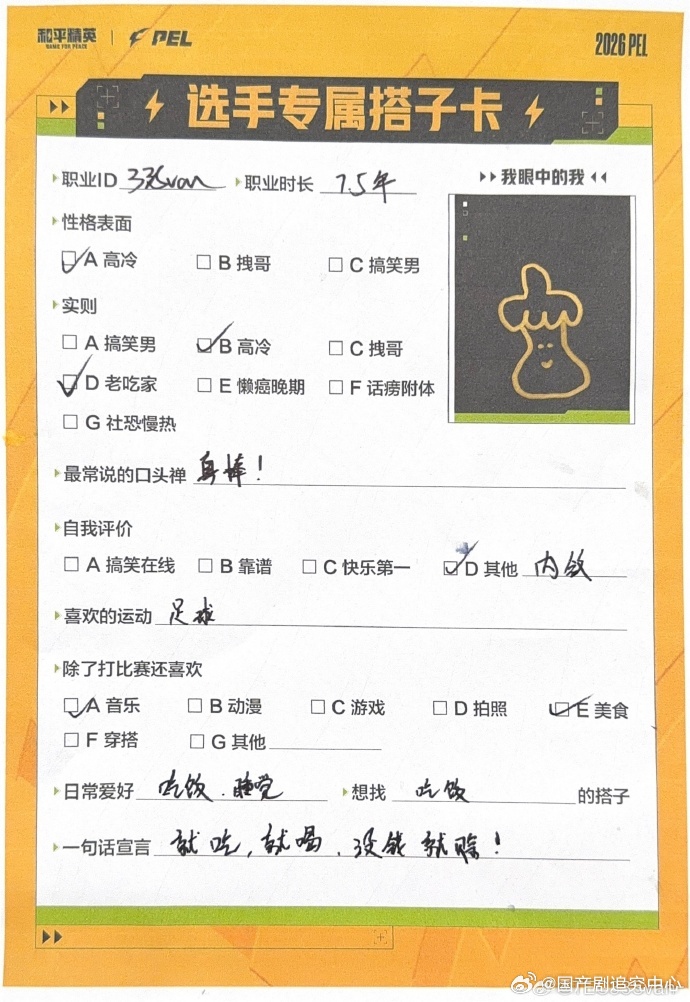 和平精英 GAME FOR PEACE | PEL 2026 PEL
选手专属搭子卡
职业ID 33Svan 职业时长 7.5年
我眼中的我
性格表面
A 高冷 B 拽哥 C 搞笑男
实则
A 搞笑男 B 高冷 C 拽哥
D 老吃家 E 懒癌晚期 F 话痨附体
G 社恐慢热
最常说的口头禅 真棒!
自我评价
A 搞笑在线 B 靠谱 C 快乐第一 D 其他 内敛
喜欢的运动 足球
除了打比赛还喜欢
A 音乐 B 动漫 C 游戏 D 拍照 E 美食
F 穿搭 G 其他
日常爱好 吃饭、睡觉 想找 吃饭 的搭子
一句话宣言 就吃,就喝,没钱就赊!
@国产剧追究中心